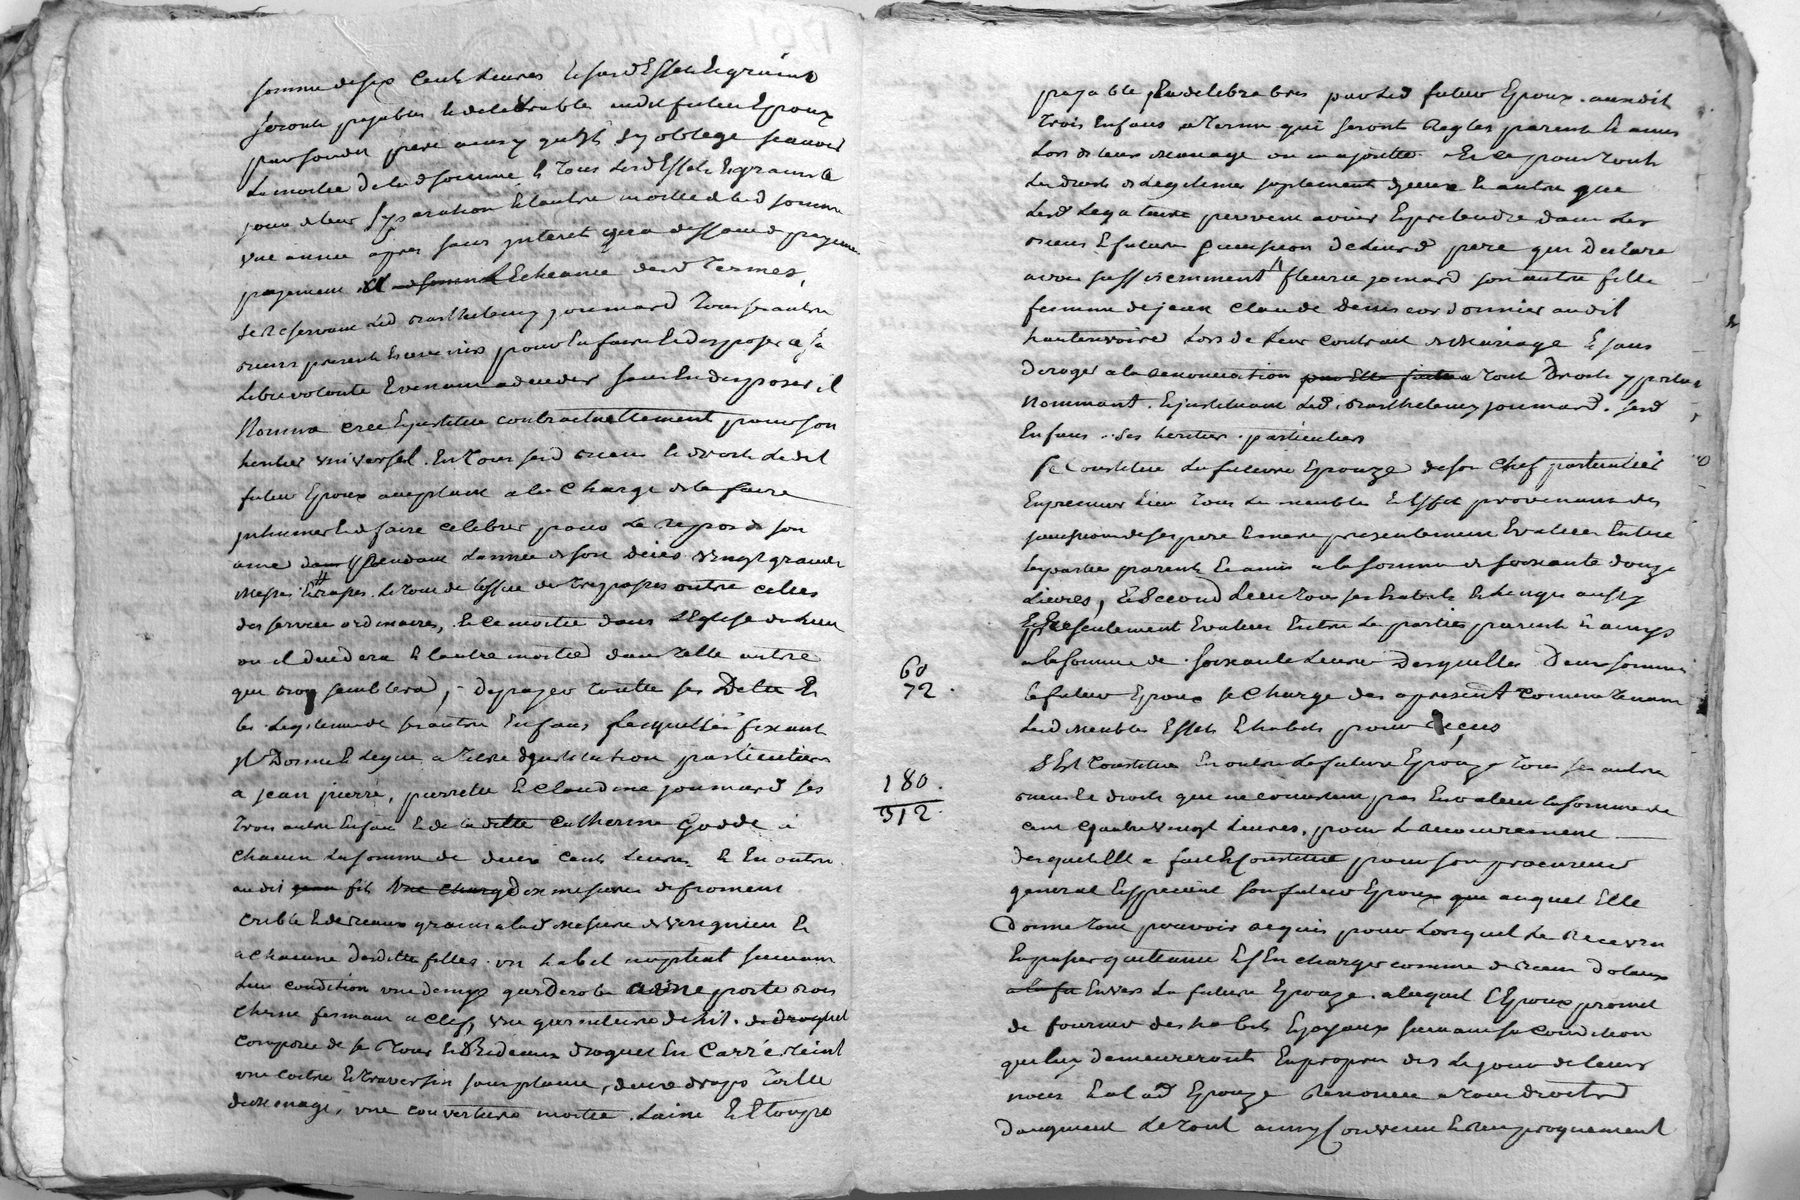 somme de six Cents Livres lesd Effets et grains
seront payables et delivrables audit futur Epoux
par sondit pere ainsy qu'il s'y oblege scavoir
La moitie de lad somme et Tous Lesd Effets et grains le
jour de leur separation et l'autre moitie de lad somme
une annee apres sans interet qu'a deffaud de payement
payement L'Echeance desd Termes,
se Reservant Led Barthelemy joumard Tous ses autres
biens presents et avenirs pour En faire et disposer a sa
Libre volonte Evenant a deceder sans En disposer il
Nomma cree Et institue contractuellement pour son
heritier universel En Tous sesd biens et droits Ledit
futur Epoux acceptant a la Charge de le faire
inhumer et de faire celebrer pour Le repos de son
ame pendant L'annee de son deces vingt grandes
Messes outre celles
des services ordinaires, et ce moitie dans L'Eglise du Lieu
ou il decedera et l'autre moitie dans Telle autre
que bon semblera, de payer Toutes ses Dettes et
les Legitimes de ses autres Enfans Lesquelles fixant
il Donne et Legue a Titre d'institution particuliere
a jean pierre, pierrette et Claudine joumard ses
Trois autres Enfans et de ladite Catherine Godde a
chacun La somme de deux Cents Livres et En outre
audit fils Dix mesures de froment
crible et de beaux grains a lad Mesure de et
a Chacune desdittes filles un habit nuptial suivant
Leur condition une demy garderobe porte bois
Chene fermant a Clef, une garniture de Lit de droguet
composee de se Tour et Rideaux droguet En Carre Teint
une coitre et Traversin sans plume, deux draps Toille
de menage, une couverture moitie Laine et Etoupe
payable et delivrables par Led futur Epoux auxdits
Trois Enfans a Terme qui seront Regles parents et amis
Lors de leur Mariage ou majorite Et ce pour Touts
Les droits de Legitimes suplement d'icelle et autre que
Lesd Legataires peuvent avoir Et pretendre dans Les
biens et future succession de Leurd pere qui Declare
avoir suffisemment fleurie joumard son autre fille
femme de jean Claude Denis cordonnier audit
hauterivoire Lors de Leur Contrait de Mariage Et sans
Deroger a la Renonciation par Elle faite a Tout Droits y portes
Nommant Et instituant Led Barthelemy joumard sesd
Enfans ses heritiers particuliers
Se Constitue La future Epouze de son Chef particulier
En premier Lieu Tous Les meubles Et Effets provenants des
successions de ses pere et mere presentement Evalues Entre
les parties parents et amis a la somme de soixante douze
Livres, Et Second Lieu Tous ses habits et Linges aussy
presentement Evalues Entre Les parties parents et amys
60
72.
a la somme de soixante Livres Desquelles Deux sommes
le futur Epoux se Charge des a present Comme Tenant
Lesd Meubles Effets Et habits pour recus
180.
312.
S'Est Constitue En outre La future Epouze Tous ses autres
biens et droits qui ne consistent pas En valeur la somme de
cent quatre vingt Livres, pour Le recouvrement
desquels Elle a fait Et Constitue pour son procureur
general et special son futur Epoux que auquel Elle
Donne Tout pouvoir requis pour Lorsquel Les Recevra
En passer quittance Et s'En charger comme de biens Dotaux
Envers La future Epouze a laquel L'Epoux promet
de fournir des habits Et joyaux suivant sa condition
qui luy demeureront En propre des Le jour de leurs
noces Et a Lad Epouze Renonce a Tous droits
d'augment Le Tout ainsy Convenu et reciproquement